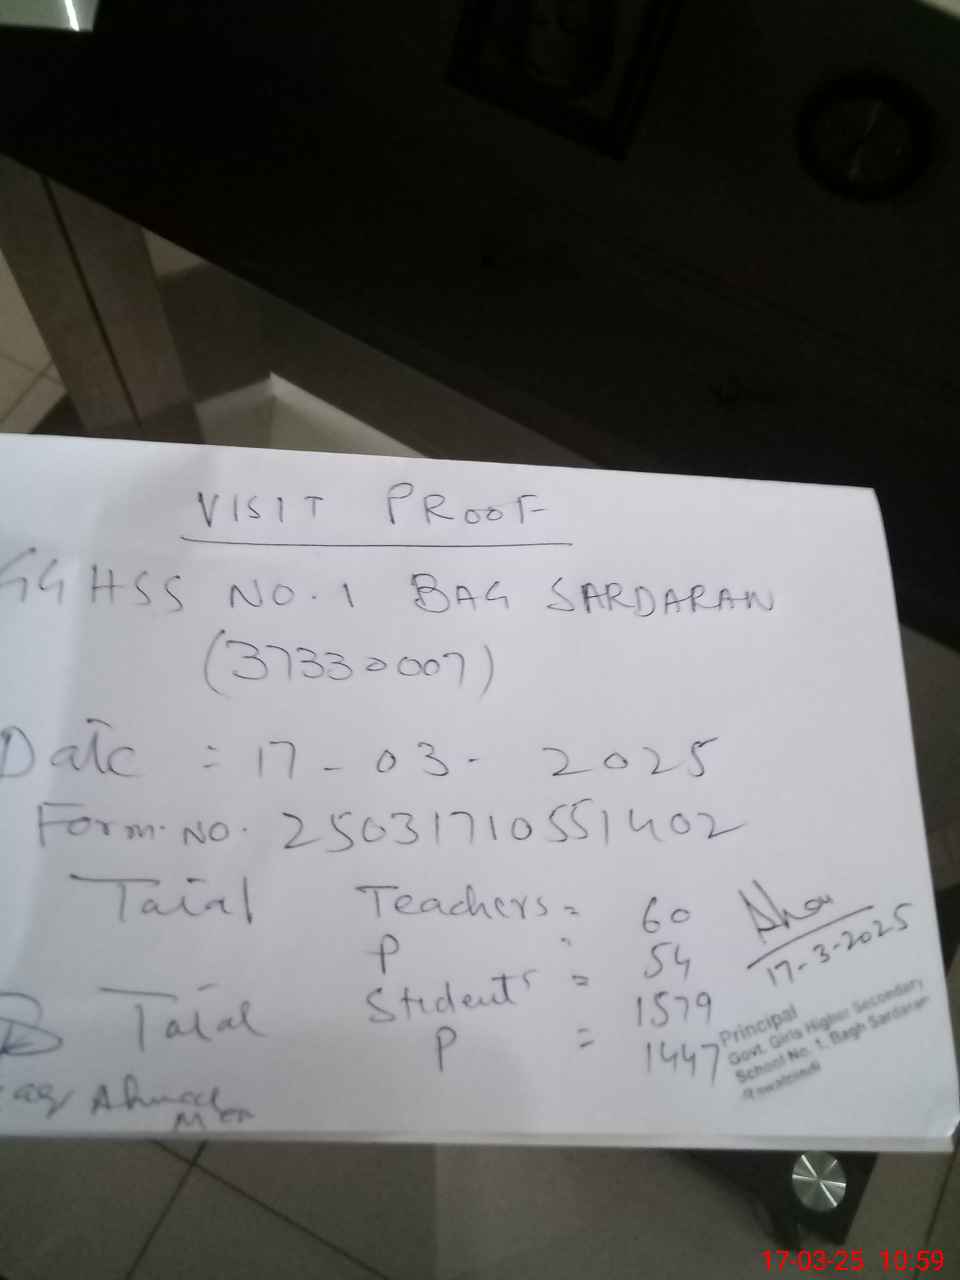 VISIT PROOF
GGHSS NO. 1 BAG SARDARAN
(37330007)
Date : 17 - 03 - 2025
Form. NO. 25031710551402
Total Teachers = 60
P " 54
Total Students = 1579
P = 1447
17-3-2025
Principal
Govt. Girls Higher Secondary
School No. 1, Bagh Sardaran
Rawalpindi
Ahmad
MEA
17-03-25 10:59